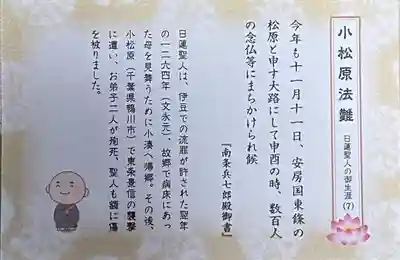 小松原法難
日蓮聖人の御生涯(7)
今年も十一月十一日、安房国東條の
松原と申す大路にして申酉の時、数百人
の念仏等にまちかけられ候
『南条兵七郎殿御書』
日蓮聖人は、伊豆での流罪が許された翌年
の一二六四年(文永元)、故郷で病床にあっ
た母を見舞うために小湊へ帰郷。その後、
小松原(千葉県鴨川市)で東条景信の襲撃
に遭い、お弟子二人が殉死、聖人も額に傷
を被りました。